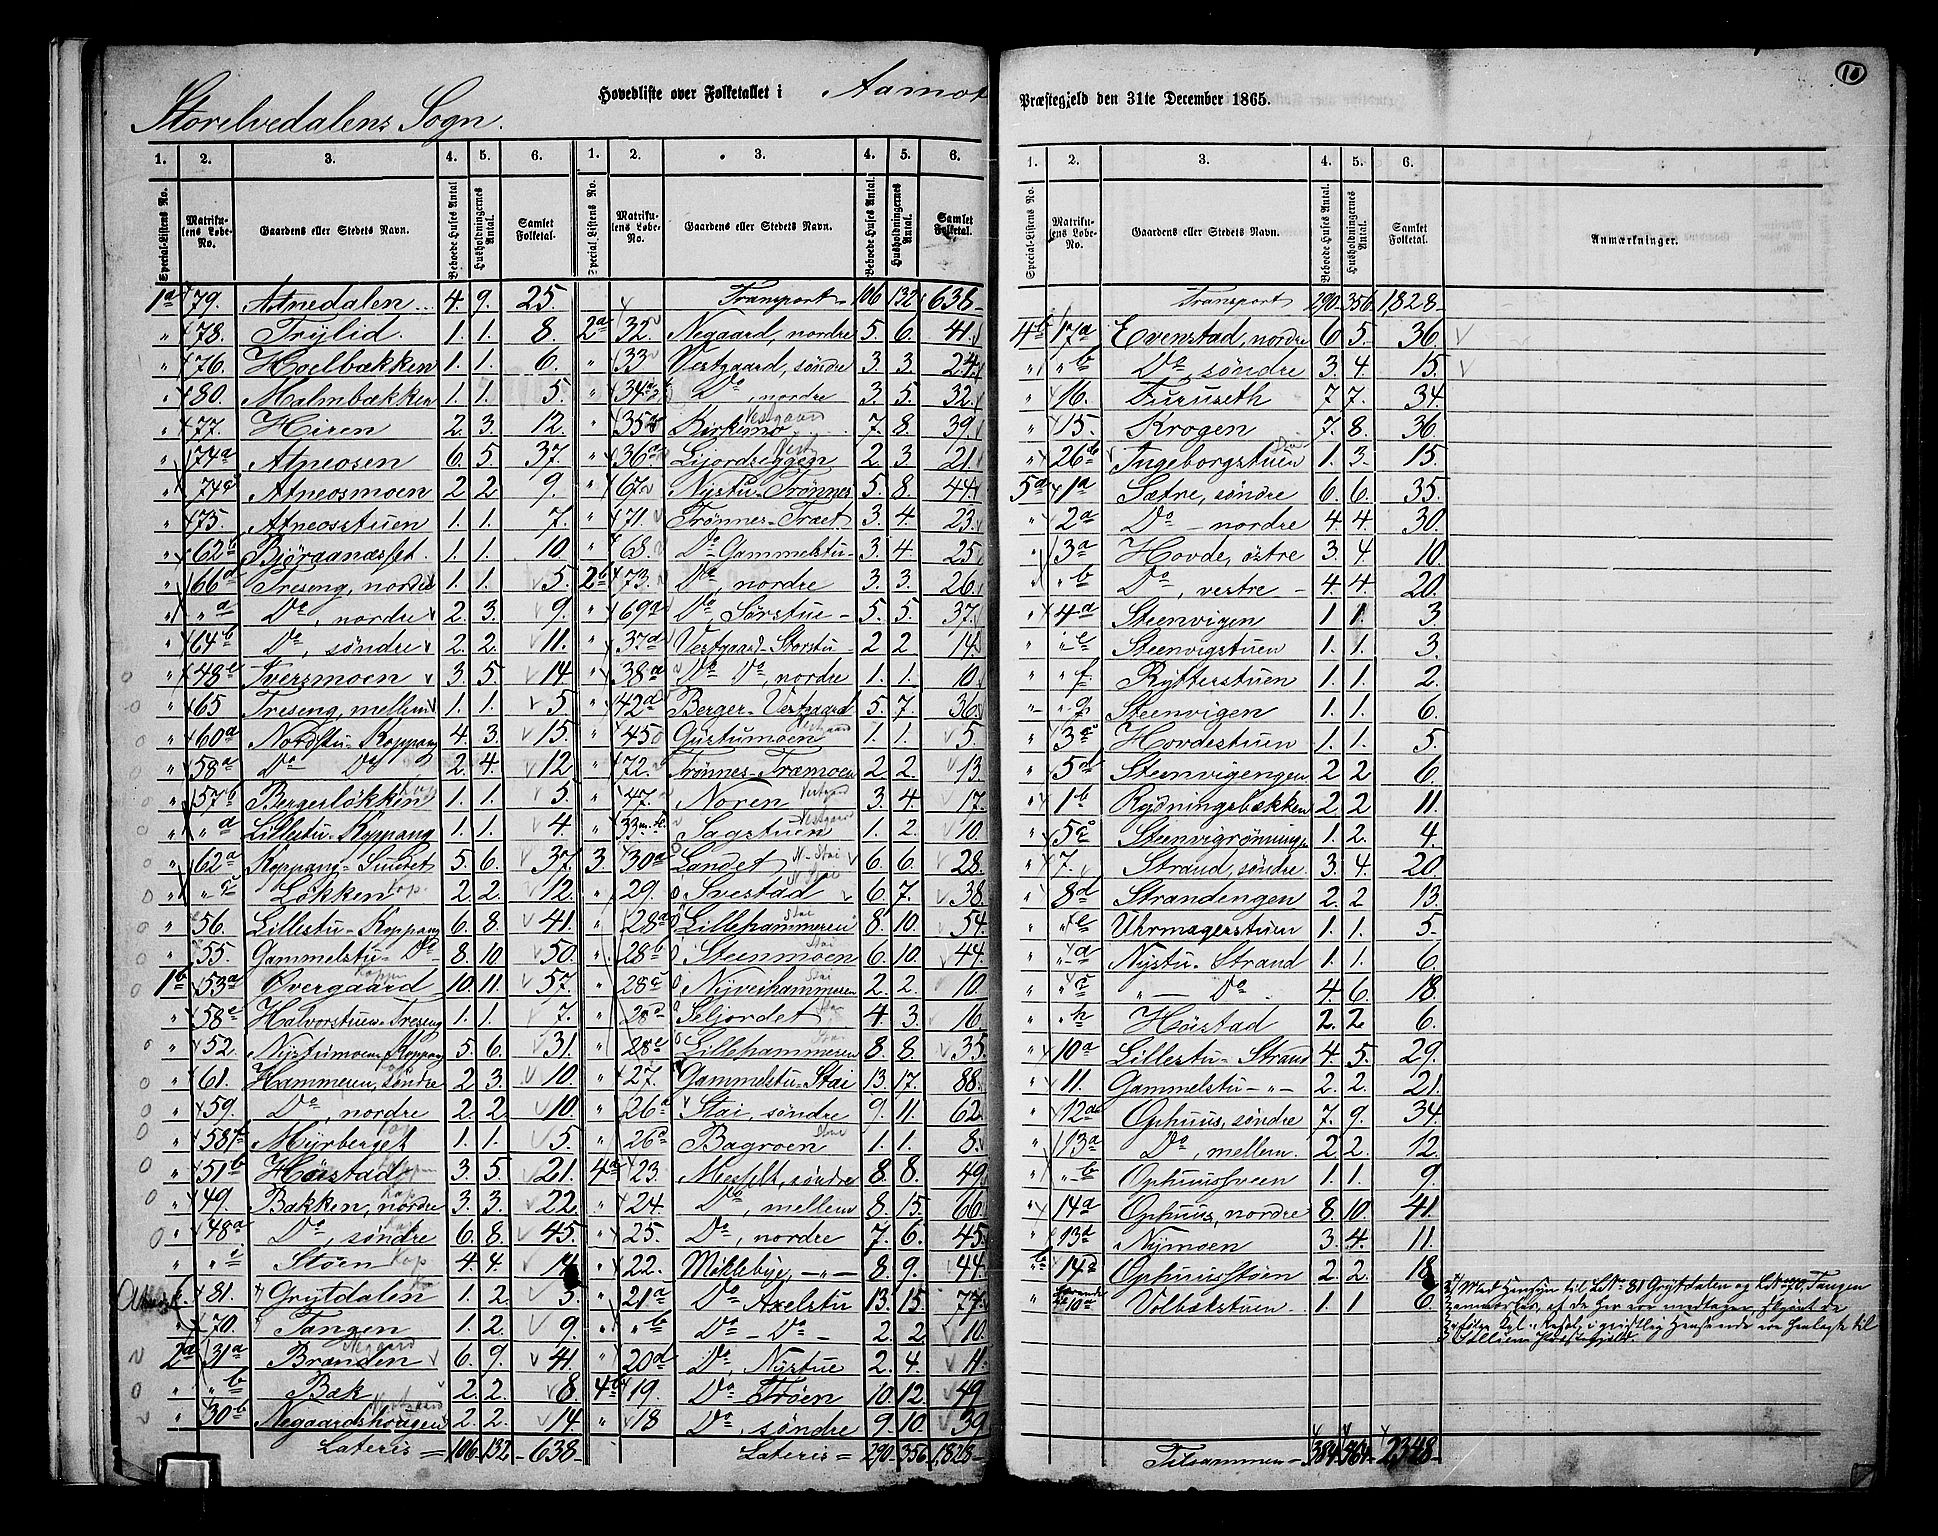 10
Storelvedalens Sogn.
Hovedliste over Folketallet i Aamot
Præstegjeld den 31te December 1865.
1. 2. 3. 4. 5. 6. 1. 2. 3. 4. 5. 6.
Special-Listens No. Matrikulens Løbe-No. Gaardens eller Stedets Navn. Beboede Huses Antal Husholdningernes Antal. Samlet Folketal. Special-Listens No. Matrikulens Løbe-No. Gaardens eller Stedets Navn. Beboede Huses Antal. Husholdningernes Antal. Samlet Folketal.
1a 79. Atnedalen 4. 9. 25
" 78. Trylid. 1. 1. 8.
" 76. Hoelbækken 1. 1. 6.
" 80. Malmbækken 1. 1. 5.
" 77. Hiren 2. 3. 12.
" 74a Atneosen 6. 5. 37.
" 74c Atneosmoen 2. 2 9.
" 75. Atneosstuen 1. 1. 7.
" 62b Björaanæsset. 1. 1. 10.
" 66d Treseng, nordre 1. 1. 5.
" " a Do, nordre 2. 3. 9.
" 64b Do, søndre 2. 2. 11.
" 48e Tversmoen 3. 5. 14
" 65 Treseng, mellem 1. 1. 5
" 60a Nordstu-Koppang 4. 3 15.
" 58a Do Do 2. 4. 12
" 57b Bergersløkken 1. 1. 5.
" " a Lillestu-Koppang 1. 1. 4.
" 62a Koppang-Smedet 5. 6. 37.
" " c Løkken Kop. 2. 2. 12.
" 56. Lillestu-Koppang 6. 8. 41.
" 55. Gammelstu-Do 8. 10 50.
1b 53a Øvergaard 10. 11. 57.
" 58e Halvorstuen-Treseng 1. 1. 7.
" 52. Nystumoen-Koppang 5. 6. 31.
" 61. Hammeren, søndre 2 3. 10.
" 59. Do, nordre 2. 2. 10.
" 58f Myrberget 1. 1. 5.
" 51b Høistad 3. 5. 21.
" 49. Bakken, nordre 3. 3. 22
" 48a Do, søndre 6. 8. 45.
" " c Støen Kop 4. 4. 14
81. Grytdalen 1. 2. 3.
" 70. Tangen 1. 2. 9.
2a 31a Brænden 6. 9. 41.
" " b Bæk 2. 2. 8.
" 30b Negaardshougen 2. 2. 14.
Lateris = 106. 132 638.
Transport 106 132 638
2a 32. Negaard, nordre 5. 6. 41.
" 33 Vestgaard, søndre 3. 3. 24
" 34a Do, nordre 3. 5. 32.
" 35a Kirkemo Vestgaard 7. 8. 39.
" 36a Lijordseggen Vest 2. 3 21.
" 67 Nystu-Trønnes 5. 8. 44
" 71. Trønnes-Træet 3. 4. 23.
" 68. Do Gammelstu- 3. 4 25
2b 73. Do, nordre 3. 3. 26.
" 69a Do, Sørstue - 5. 5. 37.
" 37a Vestgaard-Storstu- 2 2. 14.
" 38a Do Do, nordre 1. 1. 10.
" 42a Berger-Vestgaard 5. 7. 36.
" 45 Gustumoen Vestgaard 1. 1. 5.
" 72. Trønnes-Træmoen 2 2. 13.
" 47. Noren Vestgaard 3. 4 17.
" 33 Sagstuen Vestgaard 1. 2. 10.
3. 30a Landet N-Stai 6. 6. 28.
" 29. Evestad N Stai 6. 7. 38.
" 28a Lillehammeren Stai 8. 10. 54.
" 28b Steenmoen Stai 6. 10. 44.
" 28c Nyveihammeren Stai 2. 2. 10.
" 28d Seljordet 4 3. 16.
" 28e Lillehammeren Stai 8. 8. 35.
" 27. Gammelstu-Stai 13. 17. 88.
" 26a Stai, søndre 9. 11. 62.
" 26d Bagroen Stai 1. 1. 8.
4a 23. Messelt, søndre 8. 8. 49.
" 24. Do, mellem 8. 15. 66
" 25. Do, nordre 7. 6. 45.
" 22. Møklebye, - " - 8. 9. 44.
" 21a Do Axelstu 13. 15. 77.
" " b Do - Do - 2. 2 10.
" 20d Do, Nystue 2. 4. 11.
4b 19. Do Trøen 10. 12. 49
" 18 Do, søndre 9. 10. 39
Lateris = 290. 356 1,828
1. 2. 3. 4. 5. 6.
Special-Listens No. Matrikulens Løbe-No. Gaardens eller Stedets Navn. Beboede Huses Antal. Husholdningernes Antal. Samlet Folketal. Anmærkninger.
Transport 290 356 1,828-
4b 17a Evenstad, nordre 6 5. 36.
" " b Do, søndre 3. 4. 15.
" 16. Furuseth 7 7. 34.
" 15. Krogen 7. 8. 36
" 26b Ingeborgstuen 1. 3. 15.
5a 1a Sætre, søndre 6. 6. 35.
" 2a Do - nordre 4. 4 30.
" 3a Hovde, østre 3. 4 10.
" " b Do, vestre - 4. 4. 20.
" 4a Steenvigen 1 1. 3
" " e Steenvigstuen 1. 1. 3.
" " f Rytterstuen 1. 1. 2.
" " g Steenvigen 1. 1. 6.
" 3c Hovdestuen 1. 1. 5.
" 5d Steenvigengen 2 2 6.
" 1b Rydningsbækken 2. 2 11.
" 5c Steenvigrønningen 1. 2. 4.
" 7. Strand, søndre. 3. 4. 20
" 8d Strandengen 2. 2 13.
" " e Uhrmagerstuen 1. 1. 5.
" " a Nystu-Strand 1. 1. 6.
" " c " - Do 4. 6. 18.
" " h Høistad 2. 2 6.
" 10a Lillestu-Strand 4. 5. 29.
" 11. Gammelstu - " - 2. 2. 21.
" 12a Ophuus, søndre 7. 9. 34.
" 13a Do, mellem. 2 2. 12.
" " b Ophuussveen 1. 1. 9.
" 14a Ophuus, nordre 8. 10. 41.
" 13d Nymoen 3. 4. 11.
" 14d Ophuusstøen 2. 2. 18
" 10a Volbækstuen. 1. 1 6.
Med Hensyn til LNo 81 Grytdalen og LNo 70, Tangen
anmærkes, at de her ere medtagne, skjønt de
ifølge Kgl. Resol. i geistlig Henseende ere henlagte til
Tilsammen - 384 464 2,348-